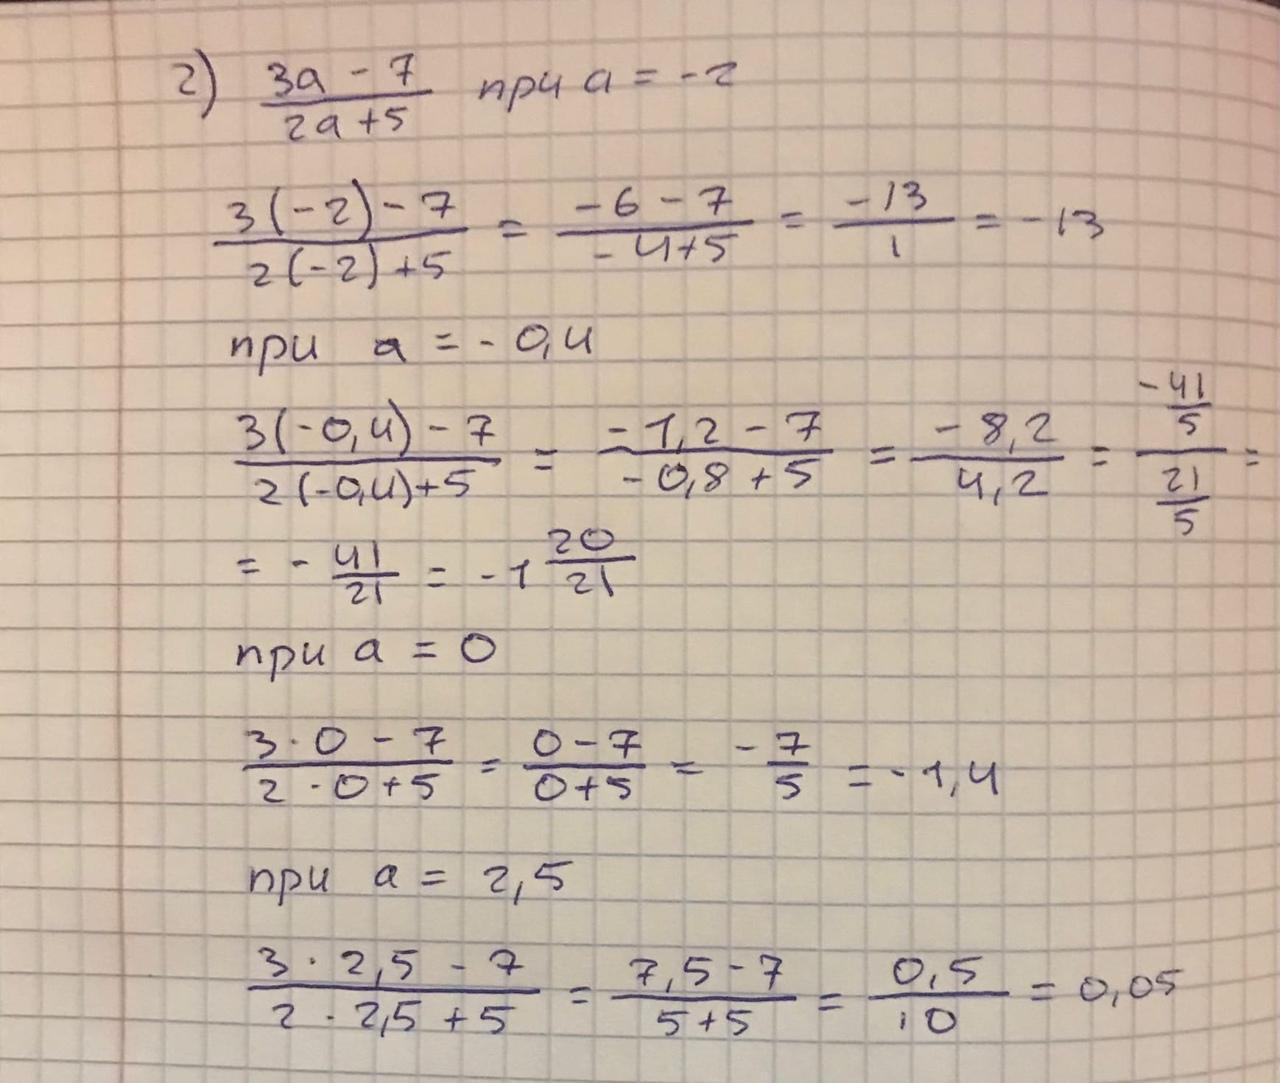 2) (3a - 7)/(2a + 5) при a = -2
(3(-2) - 7)/(2(-2) + 5) = (-6 - 7)/(-4 + 5) = (-13)/1 = -13
при a = -0,4
(3(-0,4) - 7)/(2(-0,4) + 5) = (-1,2 - 7)/(-0,8 + 5) = (-8,2)/(4,2) = (-41/5)/(21/5) =
= -41/21 = -1 20/21
при a = 0
(3·0 - 7)/(2·0 + 5) = (0 - 7)/(0 + 5) = -7/5 = -1,4
при a = 2,5
(3·2,5 - 7)/(2·2,5 + 5) = (7,5 - 7)/(5 + 5) = 0,5/10 = 0,05